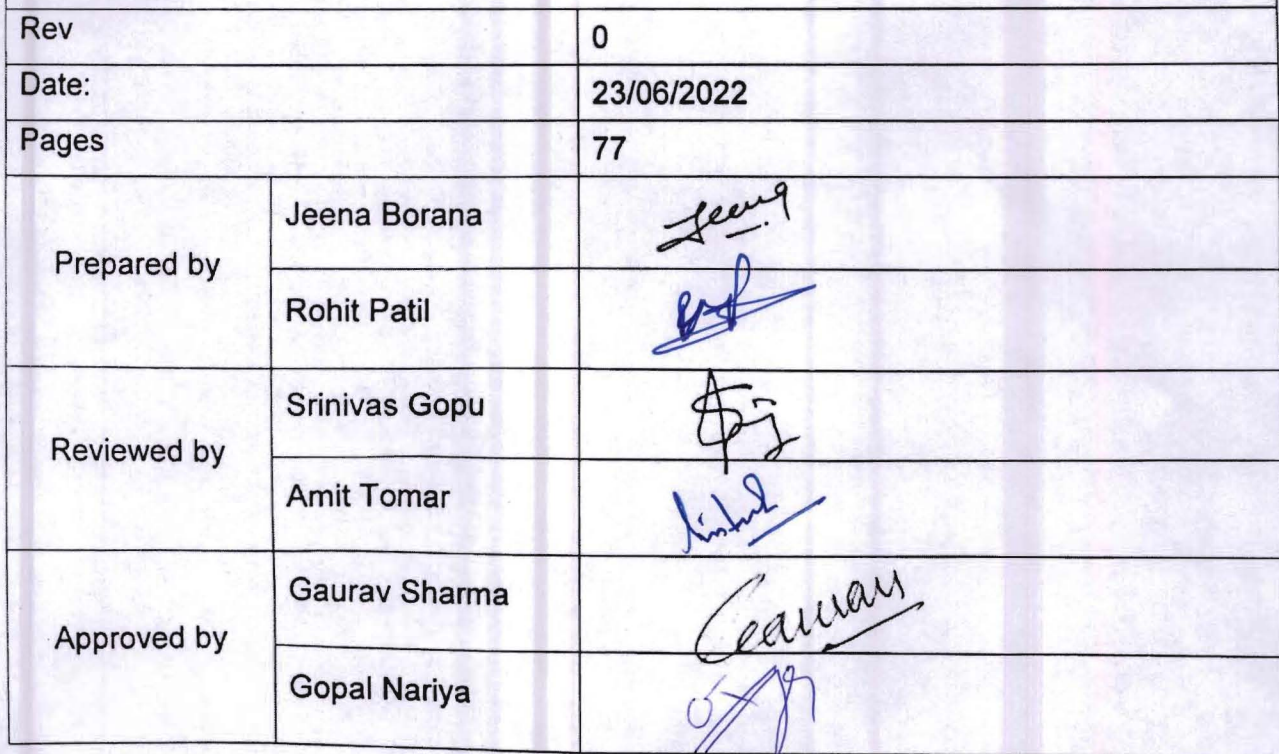 Rev 0
Date: 23/06/2022
Pages 77
Prepared by
Jeena Borana Jeena
Rohit Patil
Reviewed by
Srinivas Gopu
Amit Tomar
Approved by
Gaurav Sharma Gaurav
Gopal Nariya